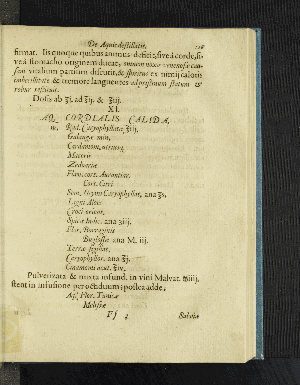 De Aquis destillatis.
firmat. Iis quoque quibus animus deficit, sive à corde, si-
ve à stomacho originem ducat, omnem noxæ venenosæ cau-
sam vitalium partium discutit, & spiritus ex nimij caloris
imbecillitate & tremore languentes ad pristinum statum &
robur restituit.
Dosis ab ʒj. ad ʒij. & ʒiij.
XI.
AQ. CORDIALIS CALIDA.
Rad. Caryophyllatæ ʒiij,
Galangæ min,
Cardamom,
Maceris
Zedoariæ
Flav. cort. Aurantior,
Cort. Citri
Sem. Ocymi Caryophyllat, ana ʒs.
Ligni Aloes
Croci orient,
Spicæ Indic. ana ʒiij.
Flor, Borraginis
Buglossæ ana M. iij.
Terræ sigillat,
Caryophyllor. ana ʒj.
Cinamomi acut. ʒiv.
Pulverisata & mixta infund. in vini Malvat.
stent in infusione per octiduum; postea adde,
Aq. Flor. Tunicæ
Melissæ
Ff 4
Salviæ